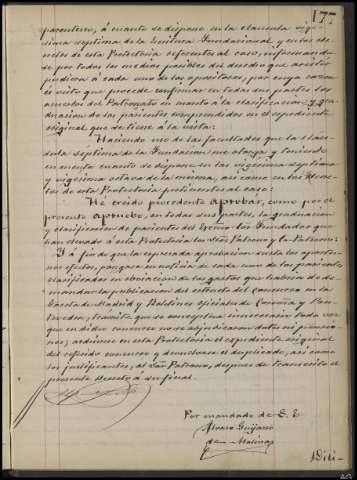 177
parentesco, á cuanto se dispone en la clausula vige-
sima septima de la Escritura fundacional, y en los de-
cretos de esta Protectoria referentes al caso, informando-
se por todos los medios posibles del derecho que asistir
pudiera á cada uno de los opositores, por cuya causa
es visto que procede confirmar en todas sus partes los
acuerdos del Patronato en cuanto á la clasificacion y gra-
duacion de los parientes comprendidos en el expediente
original que se tiene á la vista:
Haciendo uso de las facultades que la cláu-
sula séptima de la Fundacion me otorga y teniendo
en cuenta cuanto se dispone en las vigesima septima
y vigesima octava de la misma, asi como en los decre-
tos de esta Protectoria pertinentes al caso:
Hé creido procedente aprobár, como por el
presente apruebo, en todas sus partes, la graduacion
y clasificacion de parientes del Excmo Sor Fundador que
han elevado á esta Protectoria los Sres Patrono y Co-Patronos:
Y á fin de que la expresada aprobacion surta los oportu-
nos efectos, póngase en noticia de cada uno de los parientes
clasificados en obviacion de los gastos que habria de de-
mandar la publicacion del estado del Concurso en la
Gaceta de Madrid y Boletines oficiales de Coruña y Pon-
tevedra, tramite que se conceptua innecesario toda vez
que en dicho concurso no se adjudicaron dotes ni pensio-
nes; archivese en esta Protectoria el expediente original
del referido concurso y devuelvase el duplicado, asi como
los justificantes, al Sor Patrono, despues de transcrito el
presente Decreto á su final.
Por mandado de S. E.
Alvaro Guijarro
de Molina
Dili-